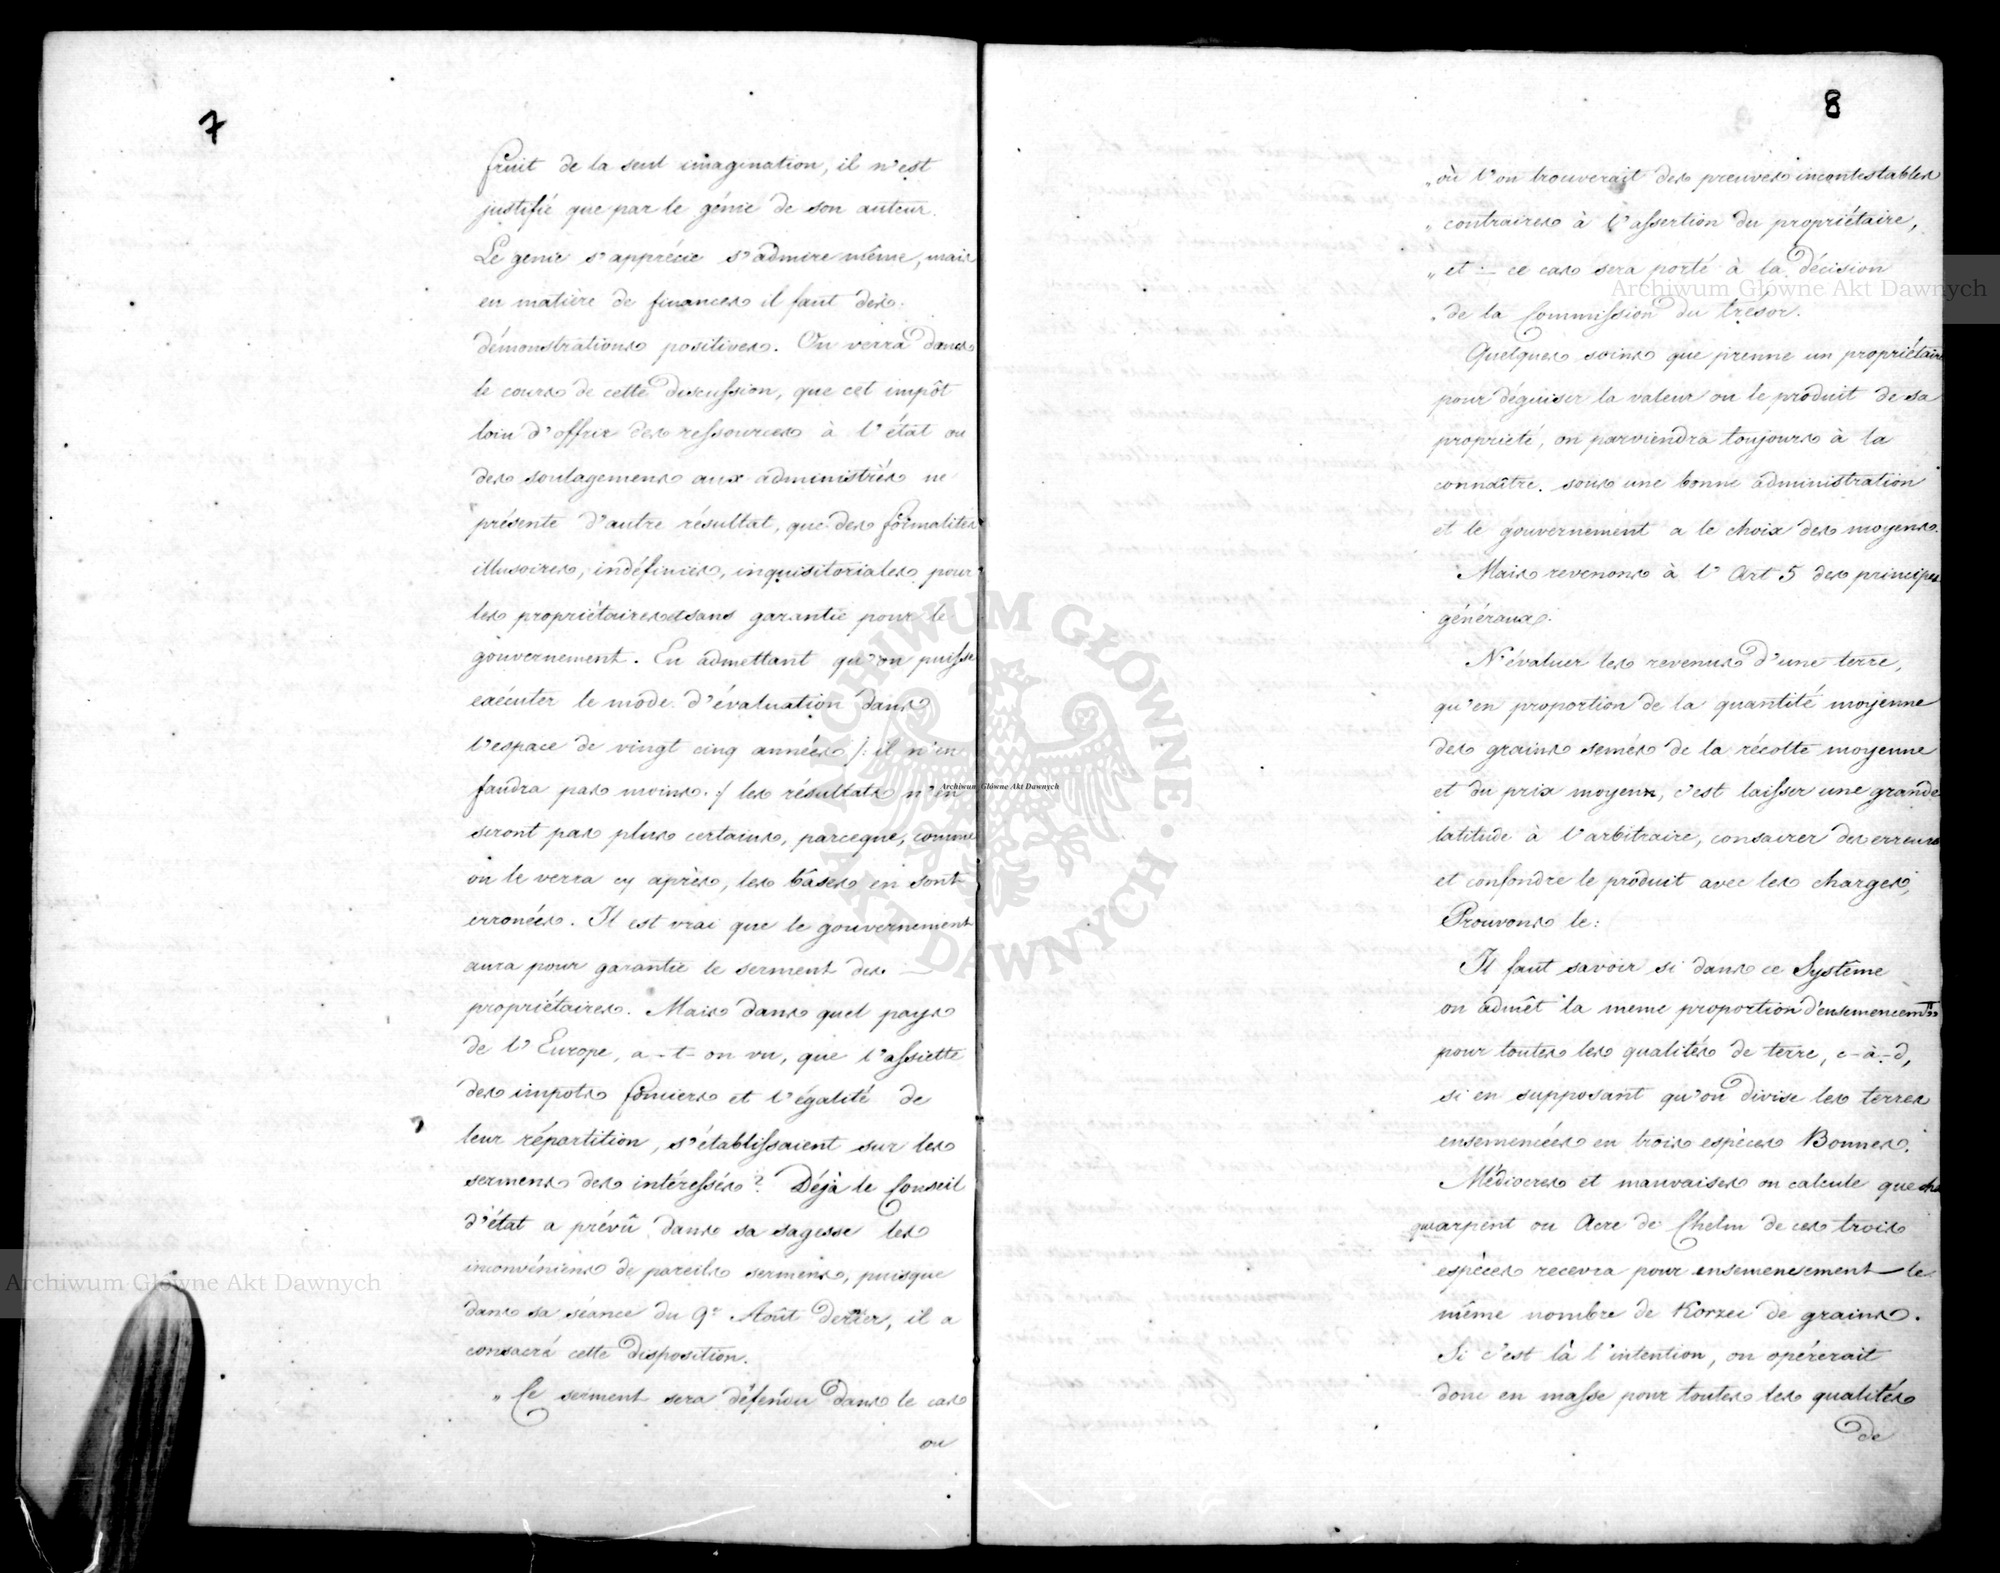 7
fruit de la seul imagination, il n'est
justifié que par le génie de son auteur.
Le genie s'apprécie s'admire même, mais
en matière de finances il faut des
démonstrations positives. On verra dans
le cours de cette discussion, que cet impôt
loin d'offrir des ressources à l'état ou
des soulagemens aux administrés ne
présente d'autre résultat, que des formalités
illusoires, indéfinies, inquisitoriales pour
les propriétaires et sans garantie pour le
gouvernement. En admettant qu'on puisse
exécuter le mode d'évaluation dans
l'espace de vingt cinq années /: il n'en
faudra pas moins :/ les résultats n'en
seront pas plus certains, parceque, comme
on le verra cy après, les bases en sont
erronées. Il est vrai que le gouvernement
aura pour garantie le serment des —
propriétaires. Mais dans quel pays
de l'Europe, a-t-on vu, que l'assiette
des impots fonciers et l'égalité de
leur répartition, s'établissaient sur les
sermens des intéressés? Déjà le Conseil
d'état a prévû dans sa sagesse les
inconvéniens de pareils sermens, puisque
dans sa séance du 9r Août dernier, il a
consacré cette disposition.
„ Ce serment sera défendu dans le cas
ou
8
„ où l'on trouverait des preuves incontestables
„ contraires à l'assertion du propriétaire,
„ et — ce cas sera porté à la décision
„ de la Commission du trésor.
Quelques soins que prenne un propriétaire
pour déguiser la valeur ou le produit de sa
propriété, on parviendra toujours à la
connaître. sous une bonne administration
et le gouvernement a le choix des moyens.
Mais revenons à l'Art 5 des principes
généraux.
N'évaluer les revenus d'une terre,
qu'en proportion de la quantité moyenne
des grains semés de la récolte moyenne
et du prix moyen, c'est laisser une grande
latitude à l'arbitraire, consacrer des erreurs
et confondre le produit avec les charges,
Prouvons le:
Il faut savoir si dans ce Systême
on admêt la meme proportion d'ensemencemts
pour toutes les qualités de terre, c-à-d,
si en supposant qu'on divise les terres
ensemencées en trois espèces Bonnes.
Médiocres et mauvaises on calcule que cha
que arpent ou Acre de Chelm de ces trois
espéces recevra pour ensemencement le
même nombre de Korzec de grains.
Si c'est là l'intention, on opérerait
donc en masse pour toutes les qualités
de
Archiwum Główne Akt Dawnych
Archiwum Główne Akt Dawnych
Archiwum Główne Akt Dawnych
ARCHIWUM GŁÓWNE · AKT DAWNYCH ·